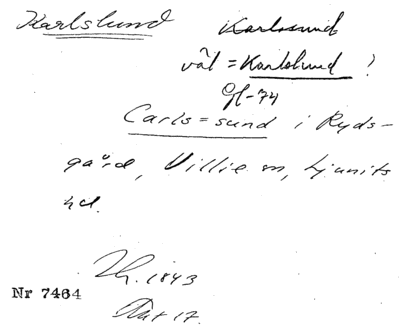 Karlslund Karlssund
väl = Karlslund ?
Gf-74
Carls=sund i Ryds-
gård, Villie sn, Ljunits
hd.
1843
Nr 7464
17